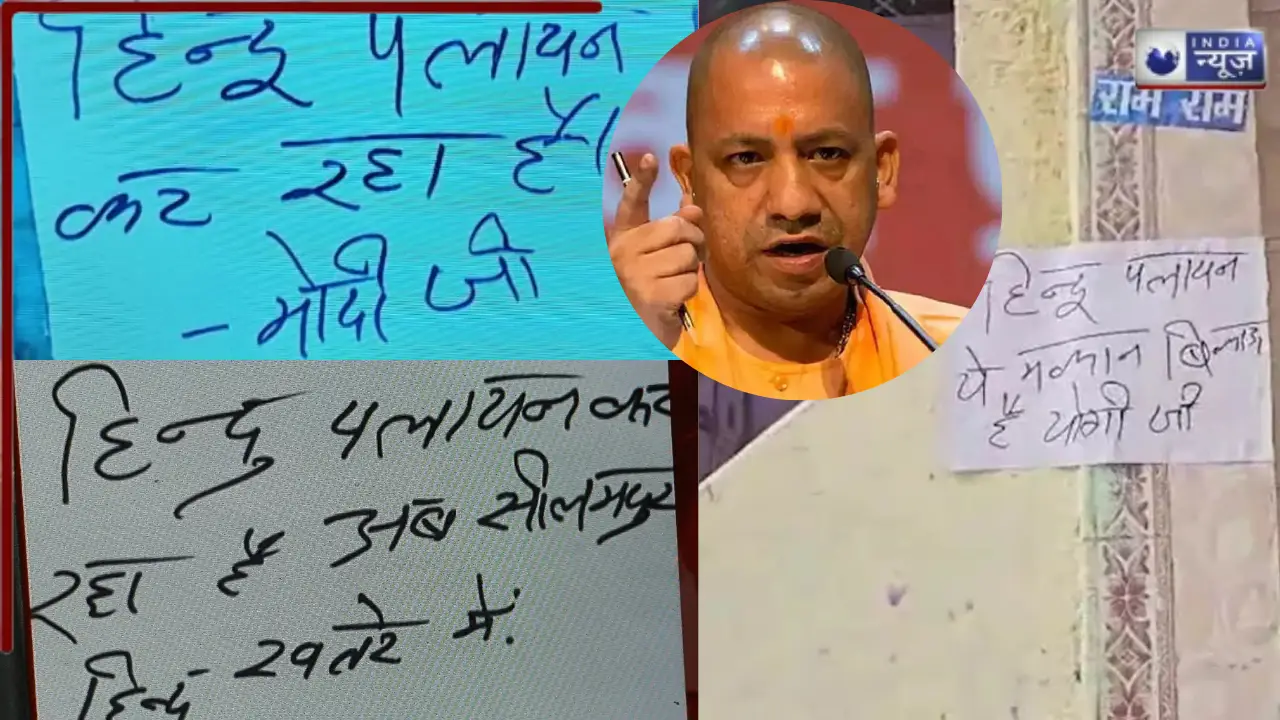 हिन्दू पलायन
कर रहा है।
- मोदी जी
हिन्दु पलायन कर
रहा है अब सीलमपुर
हिन्दु - खतरे में:
INDIA
न्यूज़
राम राम
हिन्दू पलायन
ये मकान बिकाऊ
है योगी जी